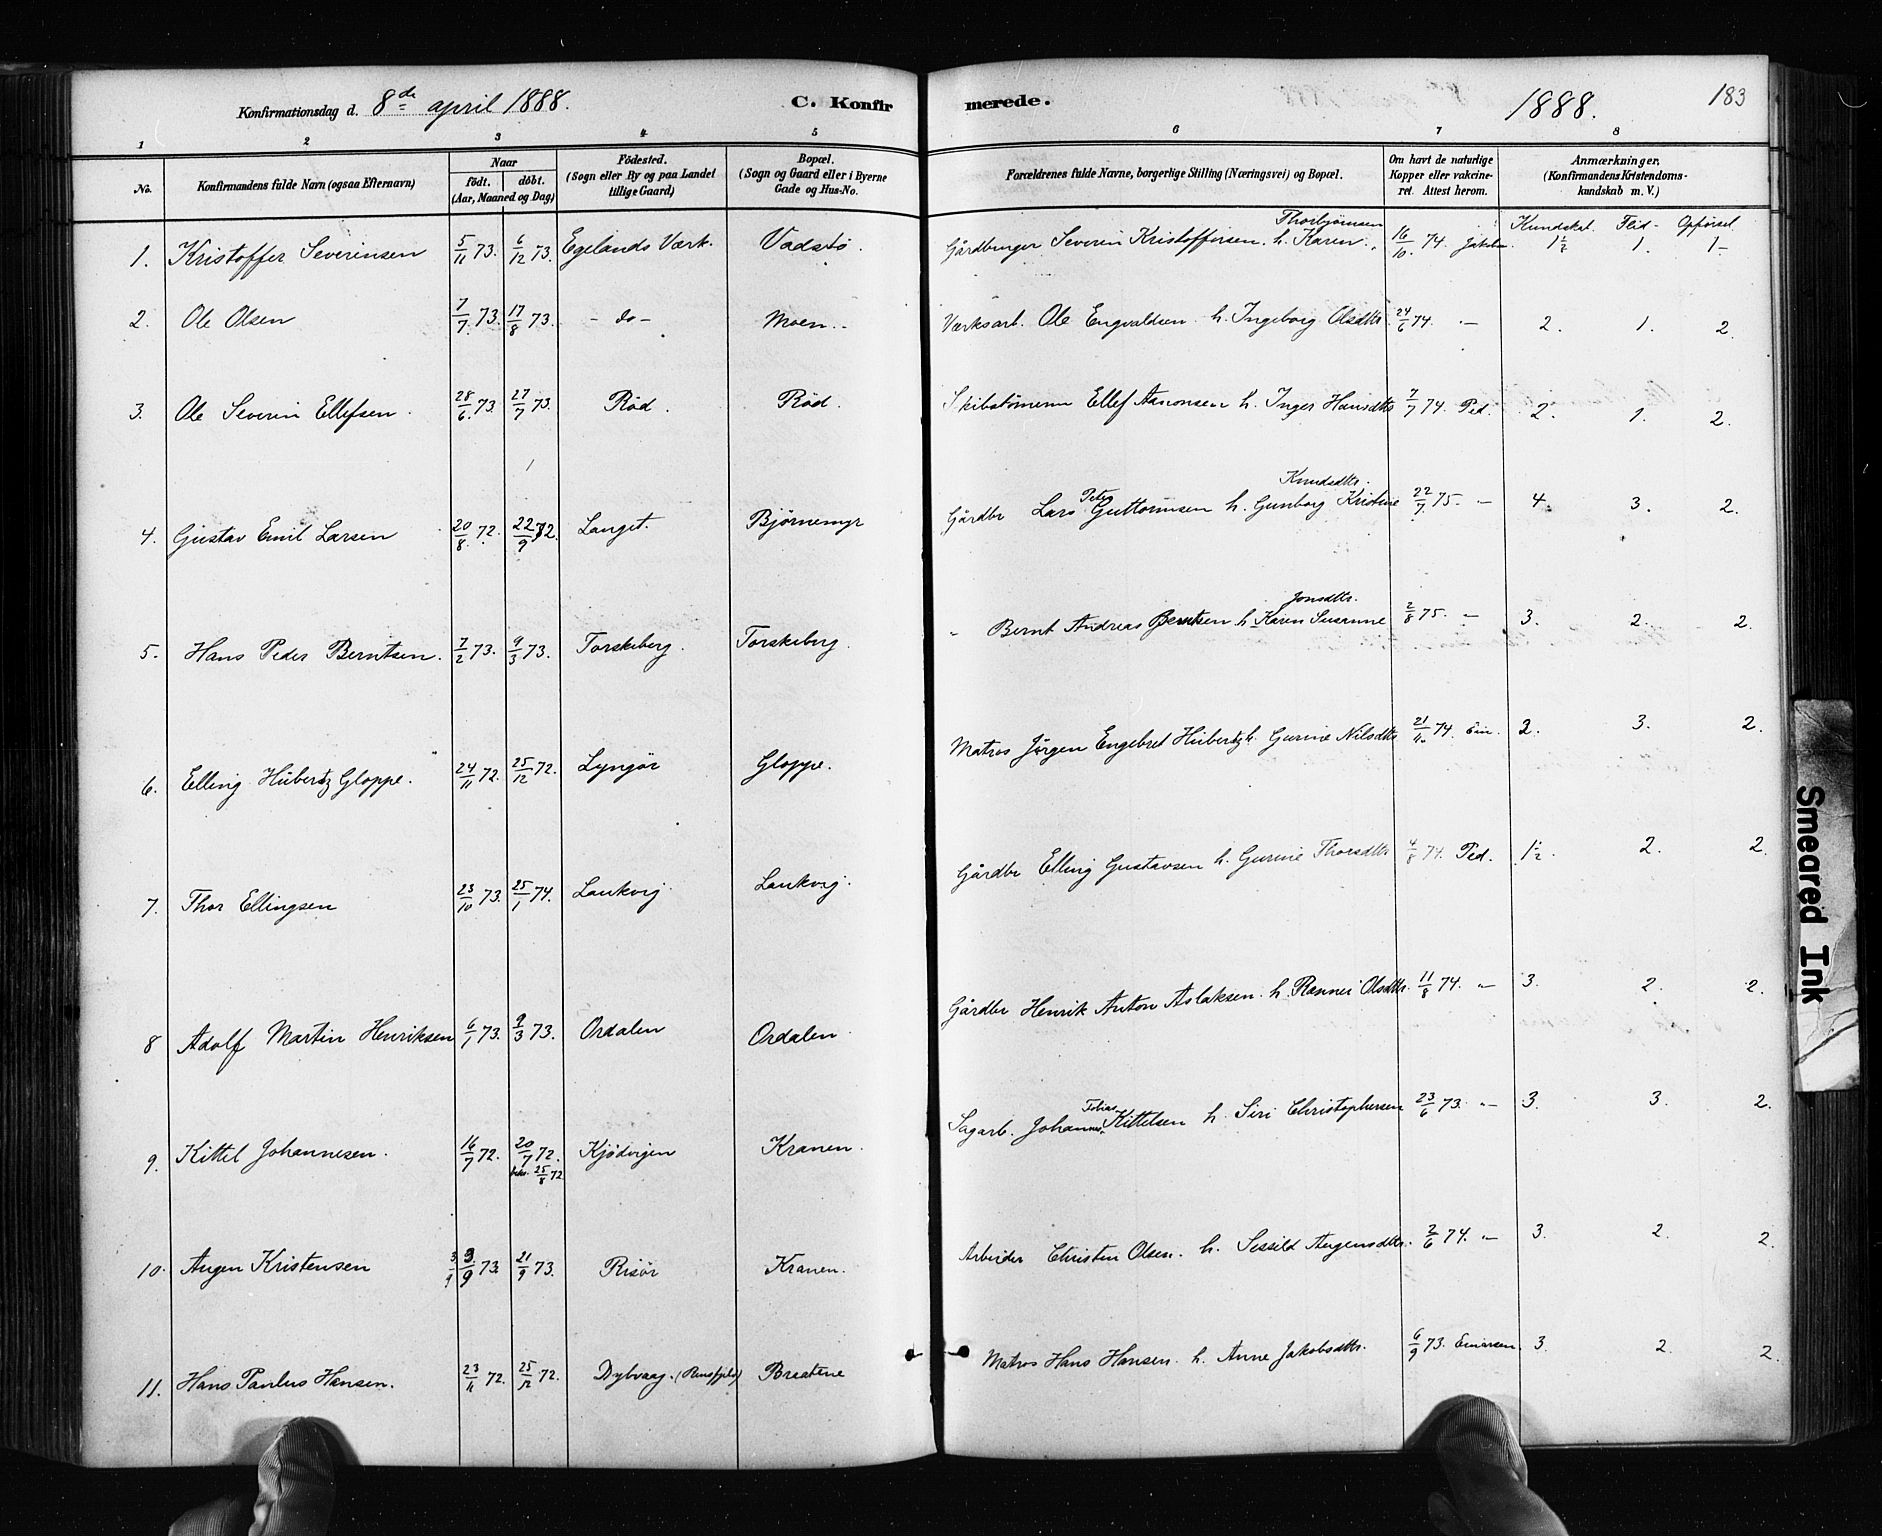 Konfirmationsdag d. 8de april 1888. C. Konfirmerede. 1888. 183
1 2 3 4 5 6 7 8
No. Konfirmandens fulde Navn (ogsaa Efternavn) Naar født. døbt. (Aar, Maaned og Dag) Fødested. (Sogn eller By og paa Landet tillige Gaard) Bopæl. (Sogn og Gaard eller i Byerne Gade og Hus-No. Forældrenes fulde Navne, borgerlige Stilling (Næringsvei) og Bopæl. Om havt de naturlige Kopper eller vakcineret. Attest herom. Anmærkninger. (Konfirmandens Kristendomskundskab m. V.)
Kundskab. Flid - Opførsel
1. Kristoffer Severinsen 5/11 73. 6/12 73. Egelands Værk. Vadstø. Gårdbruger Severin Kristoffersen h. Karen Thorbjørnsen 16/10 74 1 1/2 1. 1-
2. Ole Olsen 7/7 73. 17/8 73. - do - Moen. Værksarb. Ole Engvaldsen h. Ingeborg Olsdtr. 24/6 74. - 2. 1. 2
3. Ole Severin Ellefsen. 28/6 73. 27/7 73. Rød. Rød. Ellef Aanonsen h. Inger Hansdtr 7/7 74. Ped. 2. 1. 2.
4. Gustav Emil Larsen 20/8 72. 22/9 72. Langst. Bjørnemyr Gårdbr Lars Peter Guttormsen h. Gunborg Kristine Knudsdtr. 22/7 75. - 4. 3. 2.
5. Hans Peder Berntsen. 7/2 73. 9/3 73. Torskeberg. Torskeberg. " Bernt Andreas Berntsen h. Karen Susanne Jonsdtr. 2/8 75. - 3. 2. 2.
6. Elling Hübertz Gloppe. 24/11 72. 25/12 72. Lyngør Gloppe. Matros Jørgen Engebret Hübertz h. Gurine Nilsdtr 21/11 74. Ein. 2. 3. 2.
7. Thor Ellingsen 23/10 73. 25/1 74. Laukvig. Laukvig. Gårdbr Elling Gustavsen h. Gurine Thorsdtr 4/8 74. Ped. 1 1/2. 2. 2.
8 Adolf Martin Henriksen 6/1 73. 9/3 73. Ordalen Ordalen Gårdbr Henrik Anton Aslaksen. h. Rønnei Olsdtr. 11/8 74. - 3. 2. 2.
9. Kittel Johannesen. 16/7 72. 20/7 72. 25/8 72 Kjødvigen Kranen. Sagarb. Johannes Tobias Kittelsen h. Siri Christophersen 23/6 73. - 3. 3. 2.
10. Augen Kristensen 3/9 3/9 73. 21/9 73. Risør Kranen. Arbeider Christen Olsen. h. Sessild Augensdtr. 2/6 74. - 3. 2. 2.
11. Hans Paulus Hansen. 23/11 72. 25/12 72. Dybvaag. Braatene Matros Hans Hansen. h. Anne Jakobsdtr. 6/9 73. Einarsen 3. 2. 2.
Smeared Ink